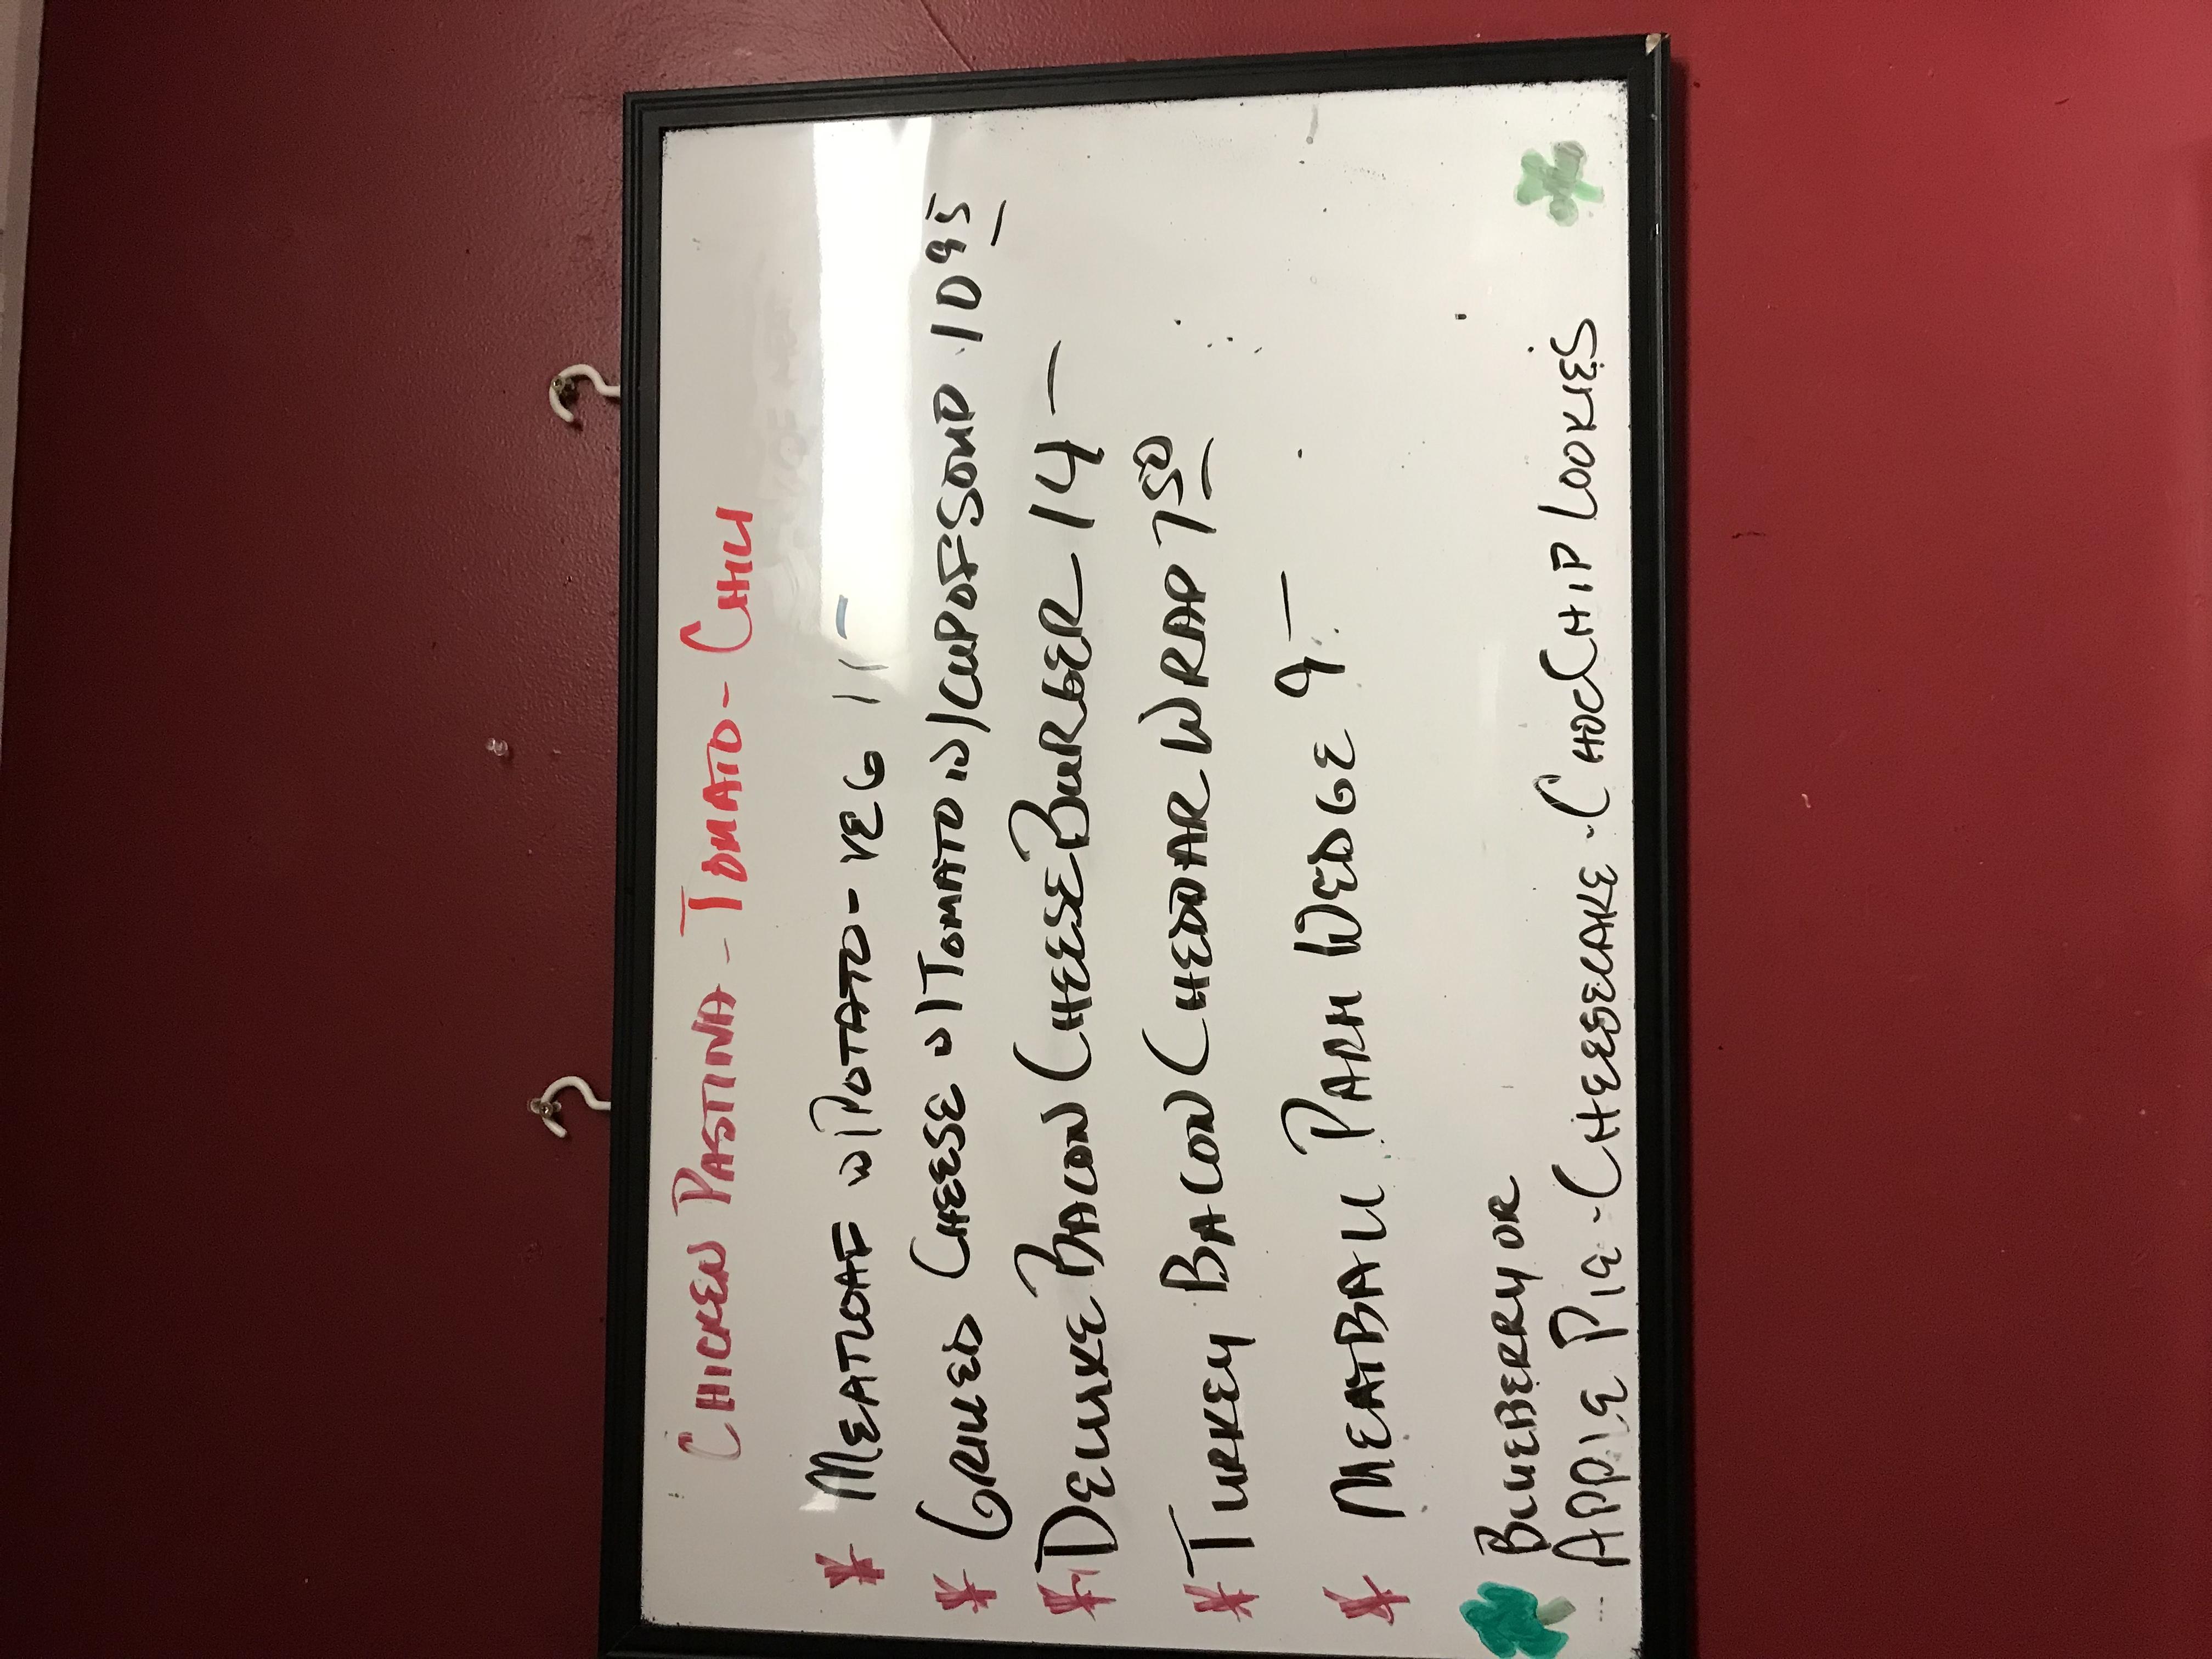 CHICKEN PASTINA - TOMATO - CHILI
* MEATLOAF w/POTATO - VEG 11 -
* GRILLED CHEESE w/TOMATO w/CUP OF SOUP 10 95
* DELUXE BACON CHEESE BURGER 14 -
* TURKEY BACON CHEDDAR WRAP 7 50
* MEATBALL PARM WEDGE 9 -
BLUEBERRY OR
APPLE PIE - CHEESECAKE - CHOC CHIP COOKIES